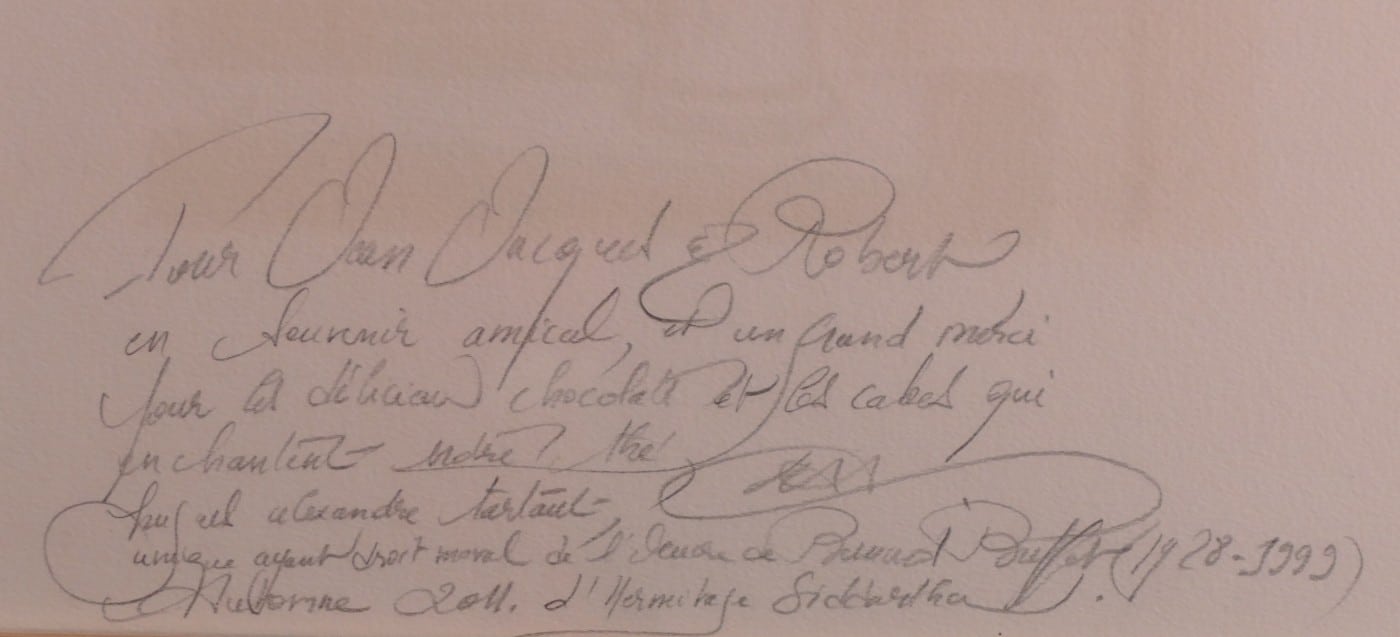 Pour Jean Jacques et Robert
en souvenir amical, et un grand merci
pour les délicieux chocolats et les cakes qui
enchantent notre thé
hugues alexandre tartaut
unique ayant droit moral de l'Œuvre de Bernard Buffet (1928-1999)
Automne 2011. d'Hermitage Siddartha